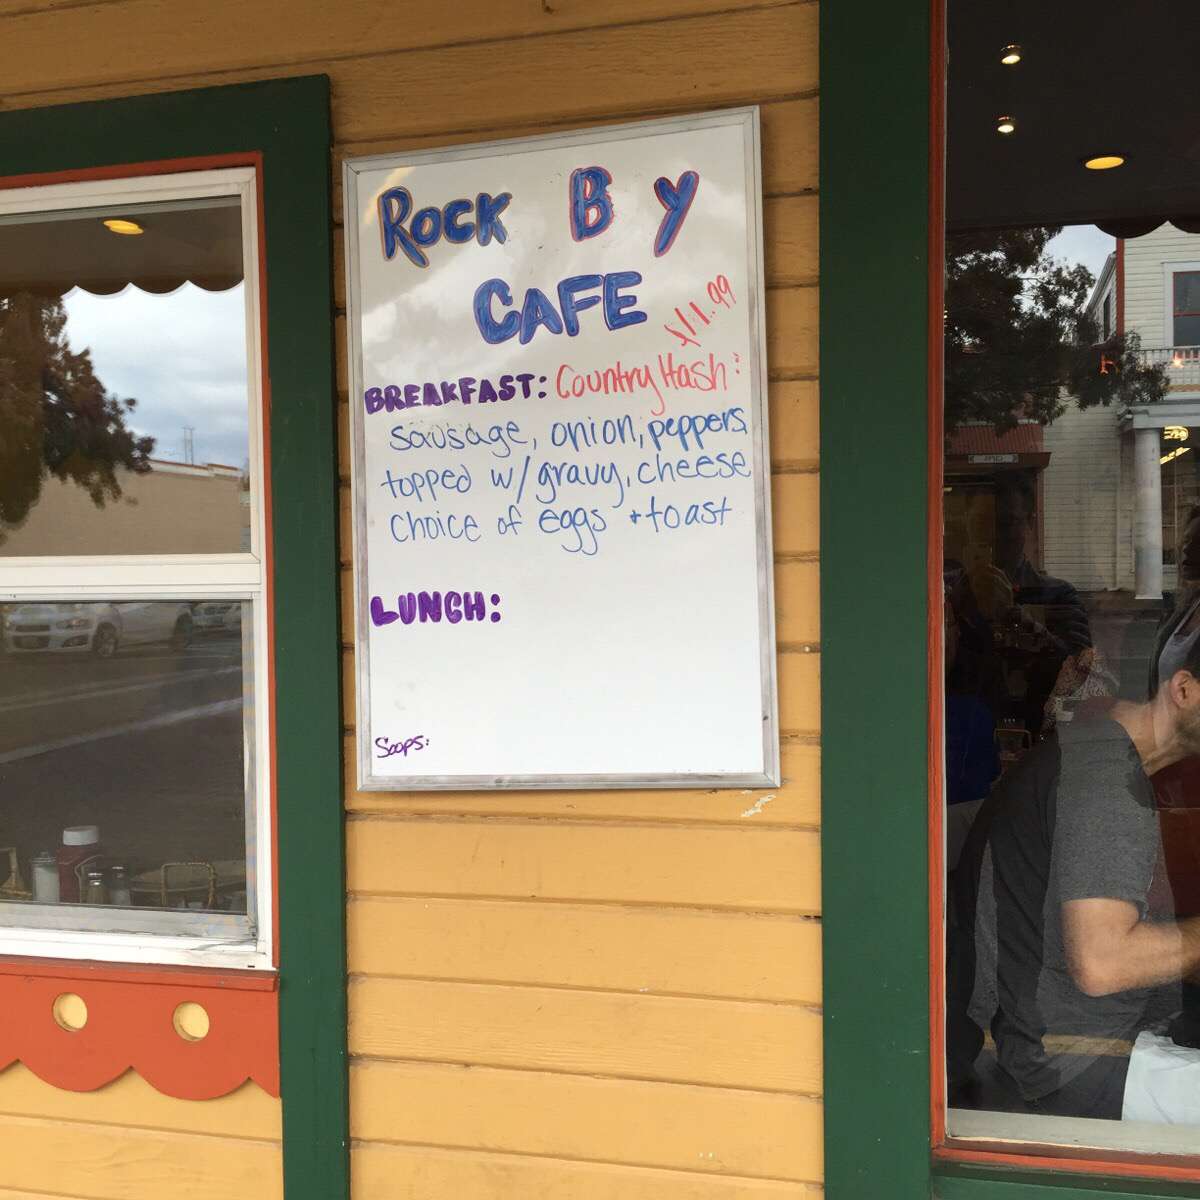 ROCK BY
CAFE
$11.99
BREAKFAST: Country Hash:
sausage, onion, peppers,
topped w/ gravy, cheese
choice of eggs + toast
LUNCH:
Soops: